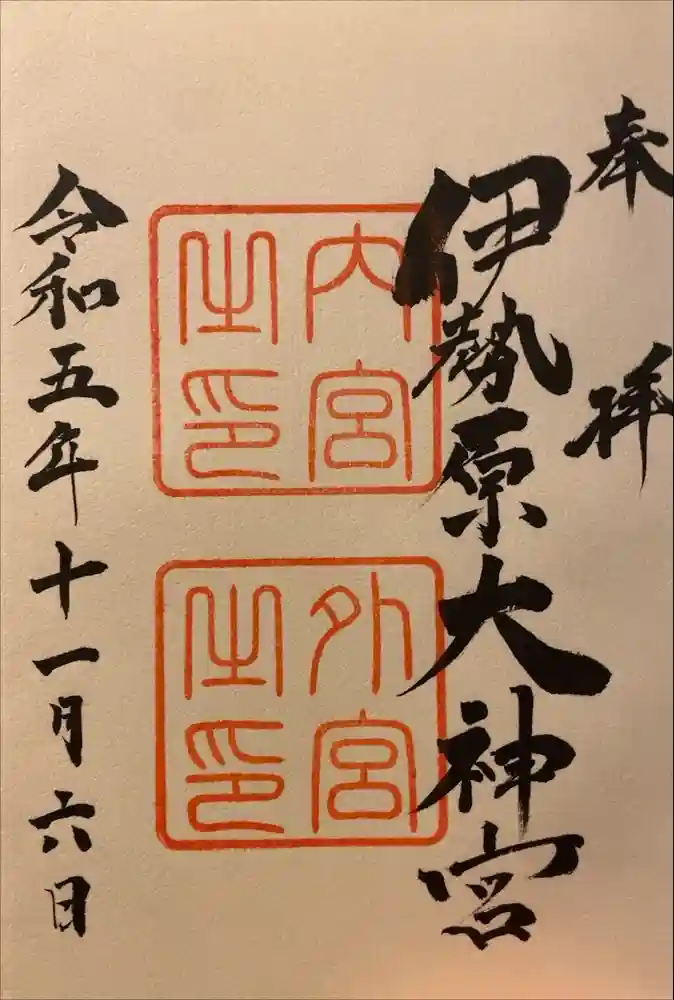 奉拝
伊勢原大神宮
内宮
之印
外宮
之印
令和五年十一月六日